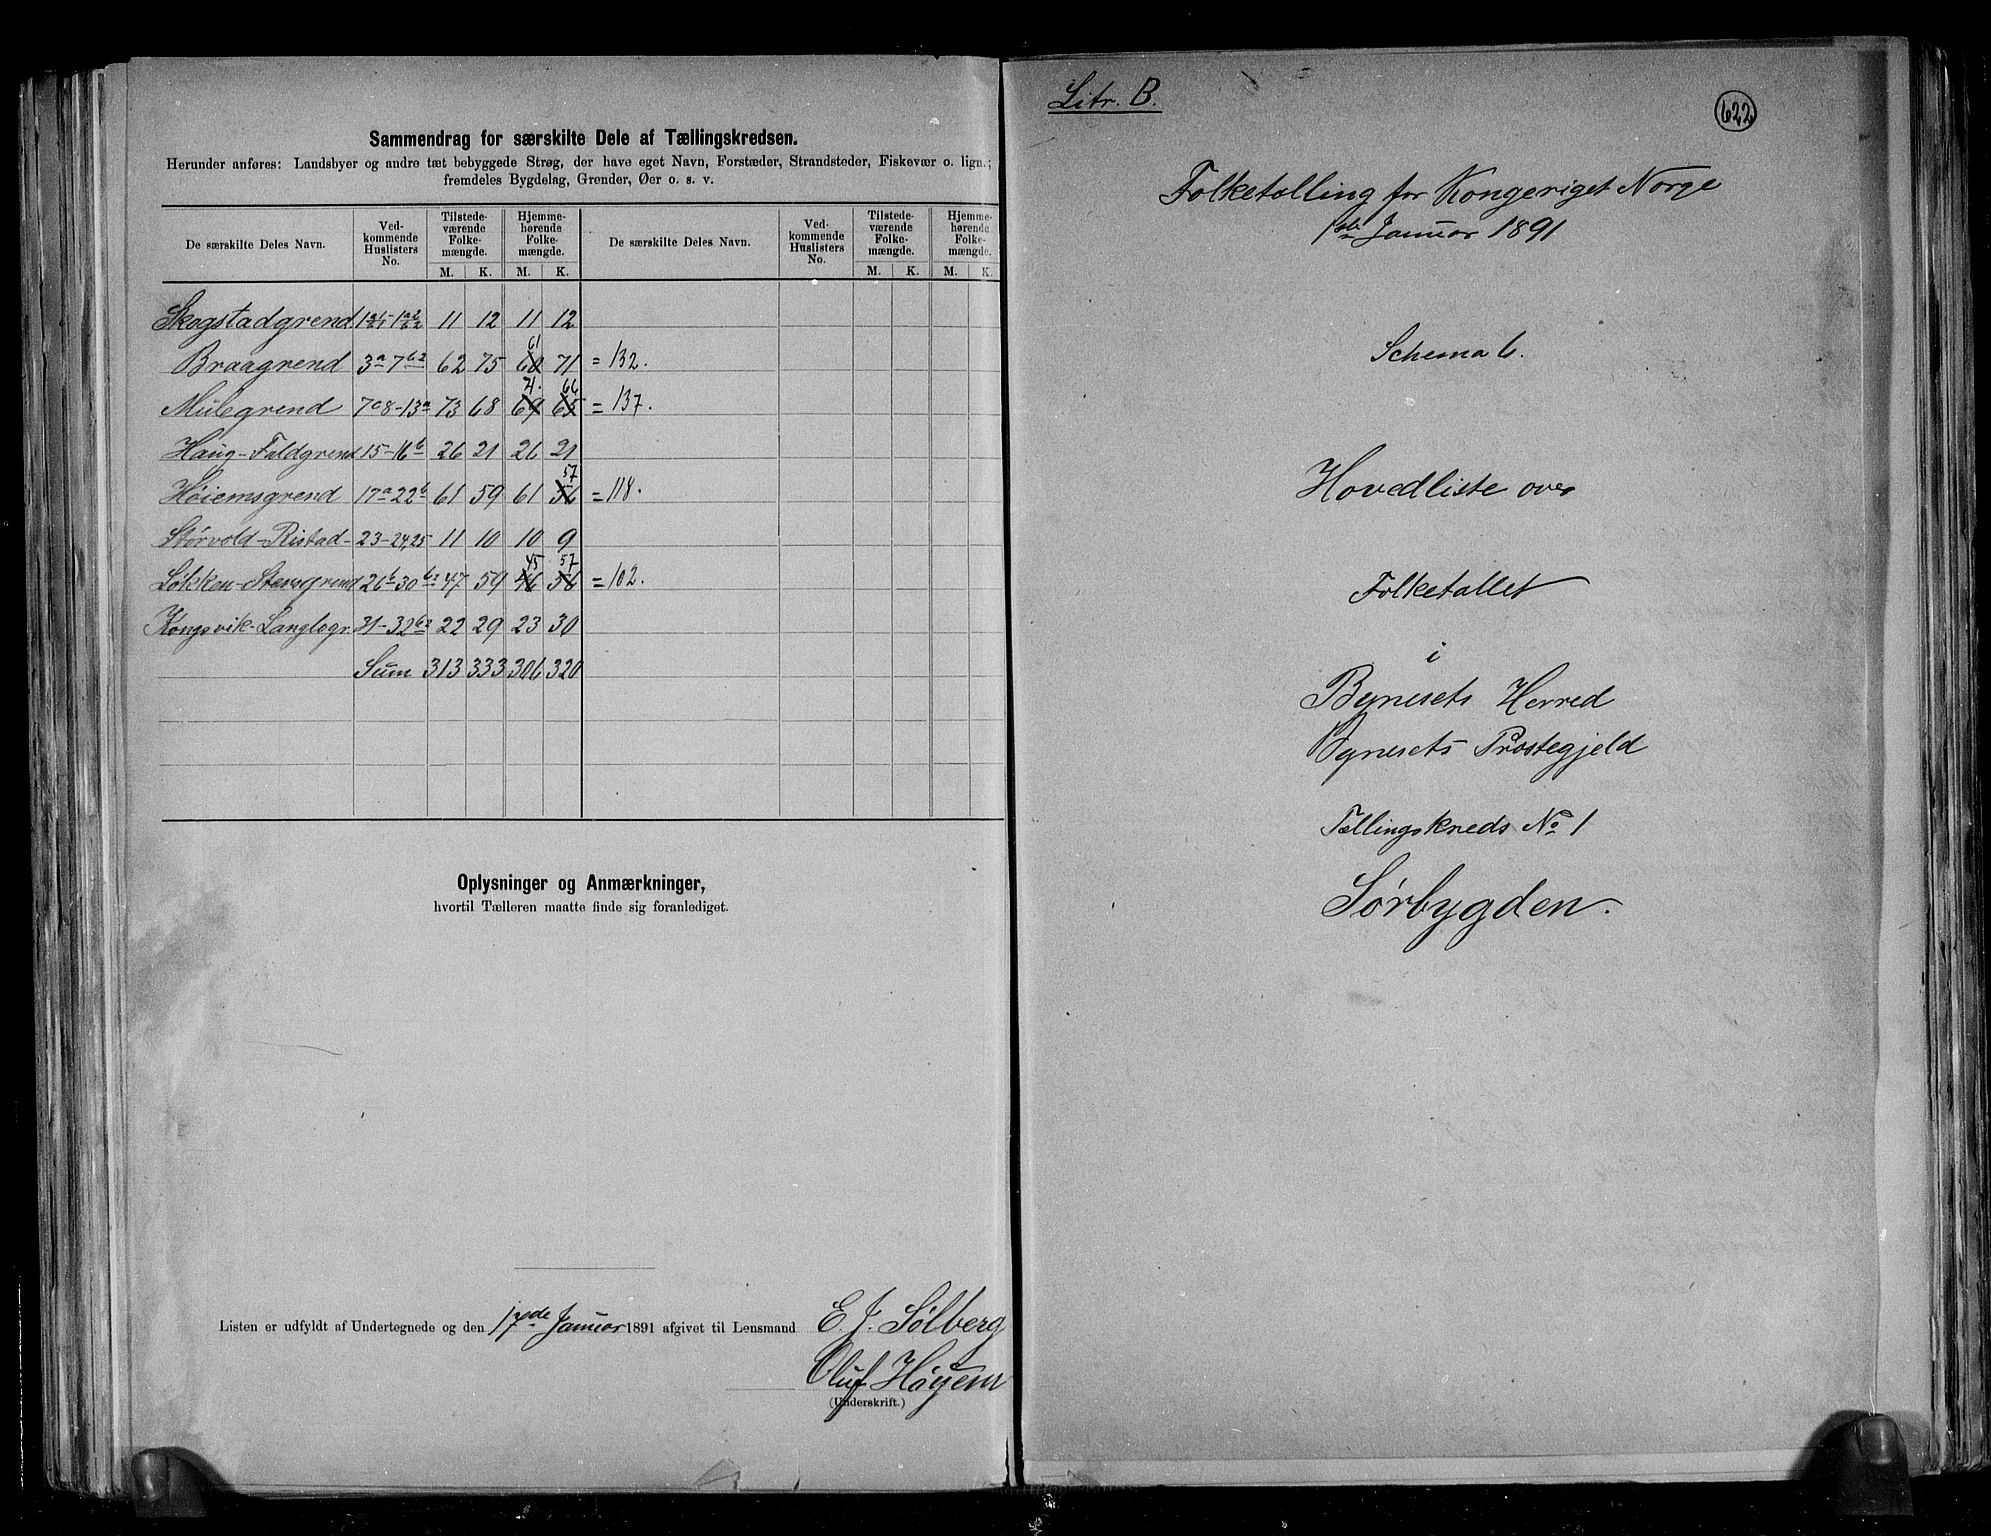 Sammendrag for særskilte Dele af Tællingskredsen.
Herunder anføres: Landsbyer og andre tæt bebyggede Strøg, der have eget Navn, Forstæder, Strandsteder, Fiskevær o. lign.;
fremdeles Bygdelag, Grender, Øer o. s. v.
De særskilte Deles Navn. Ved-kommende Huslisters No. Tilstede-værende Folke-mængde. Hjemme-hørende Folke-mængde. De særskilte Deles Navn. Ved-kommende Huslisters No. Tilstede-værende Folke-mængde. Hjemme-hørende Folke-mængde.
M. K. M. K. M. K. M. K.
Skogstadgrend 11 12 11 12
61
Braagrend 3a 7b2 62 75 60 71 = 132.
71. 66
Mulegrend 7a8-13a 73 68 69 65 = 137.
Haug-Faldgrend 15-16b 26 21 26 21
57
Høiemsgrend 17a-22b 61 59 61 56 = 118.
Størvold-Ristad- 23-24,25 11 10 10 9
45 57
Løkken-Stensgrend 26b-30b2 47 59 46 56 = 102.
Kongsvik-Langlogr. 31-32b2 22 29 23 30
Sum 313 333 306 320
Oplysninger og Anmærkninger,
hvortil Tælleren maatte finde sig foranlediget.
Listen er udfyldt af Undertegnede og den 17de Januar 1891 afgivet til Lensmand E. J. Sølberg
Oluf Høyem
(Underskrift.)
Litr. B.
622
Folketælling for Kongeriget Norge
1ste Januar 1891
Schema 6.
Hovedliste over
Folketallet
i
Bynesets Herred
Bynesets Præstegjeld
Tællingskreds No 1
Sørbygden.